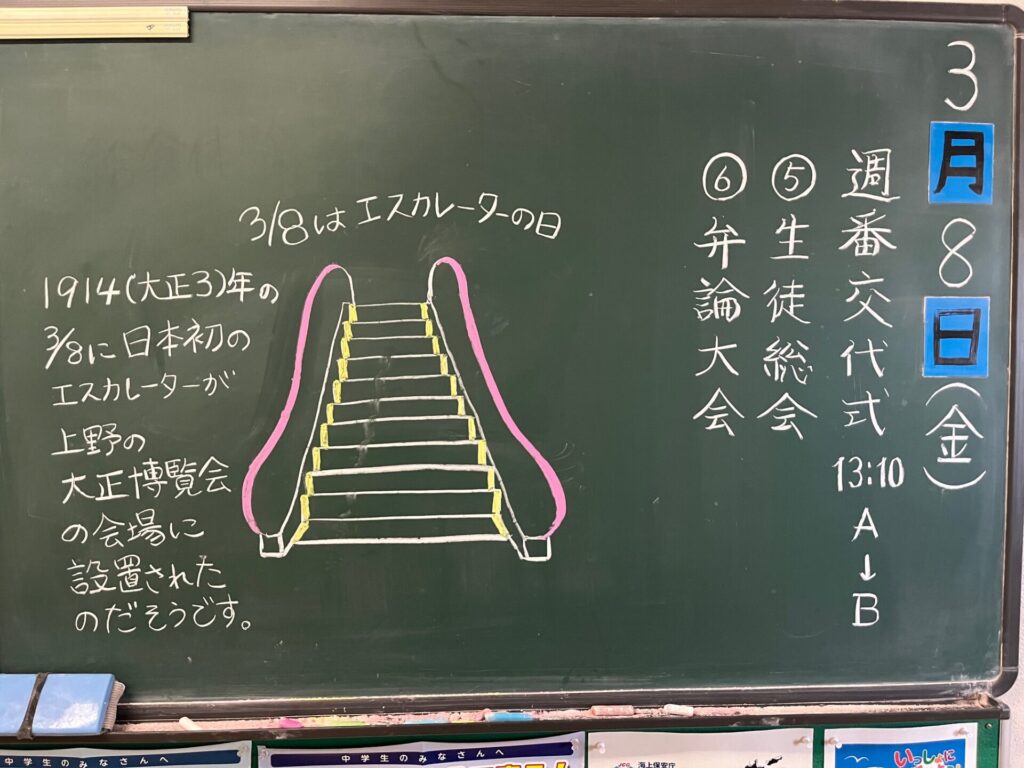 3月8日(金)
週番交代式 13:10 A→B
⑤生徒総会
⑥弁論大会
3/8はエスカレーターの日
1914(大正3)年の
3/8に日本初の
エスカレーターが
上野の
大正博覧会
の会場に
設置された
のだそうです。
中学生のみなさんへ
中学生のみなさんへ
海上保安庁
いっしょに